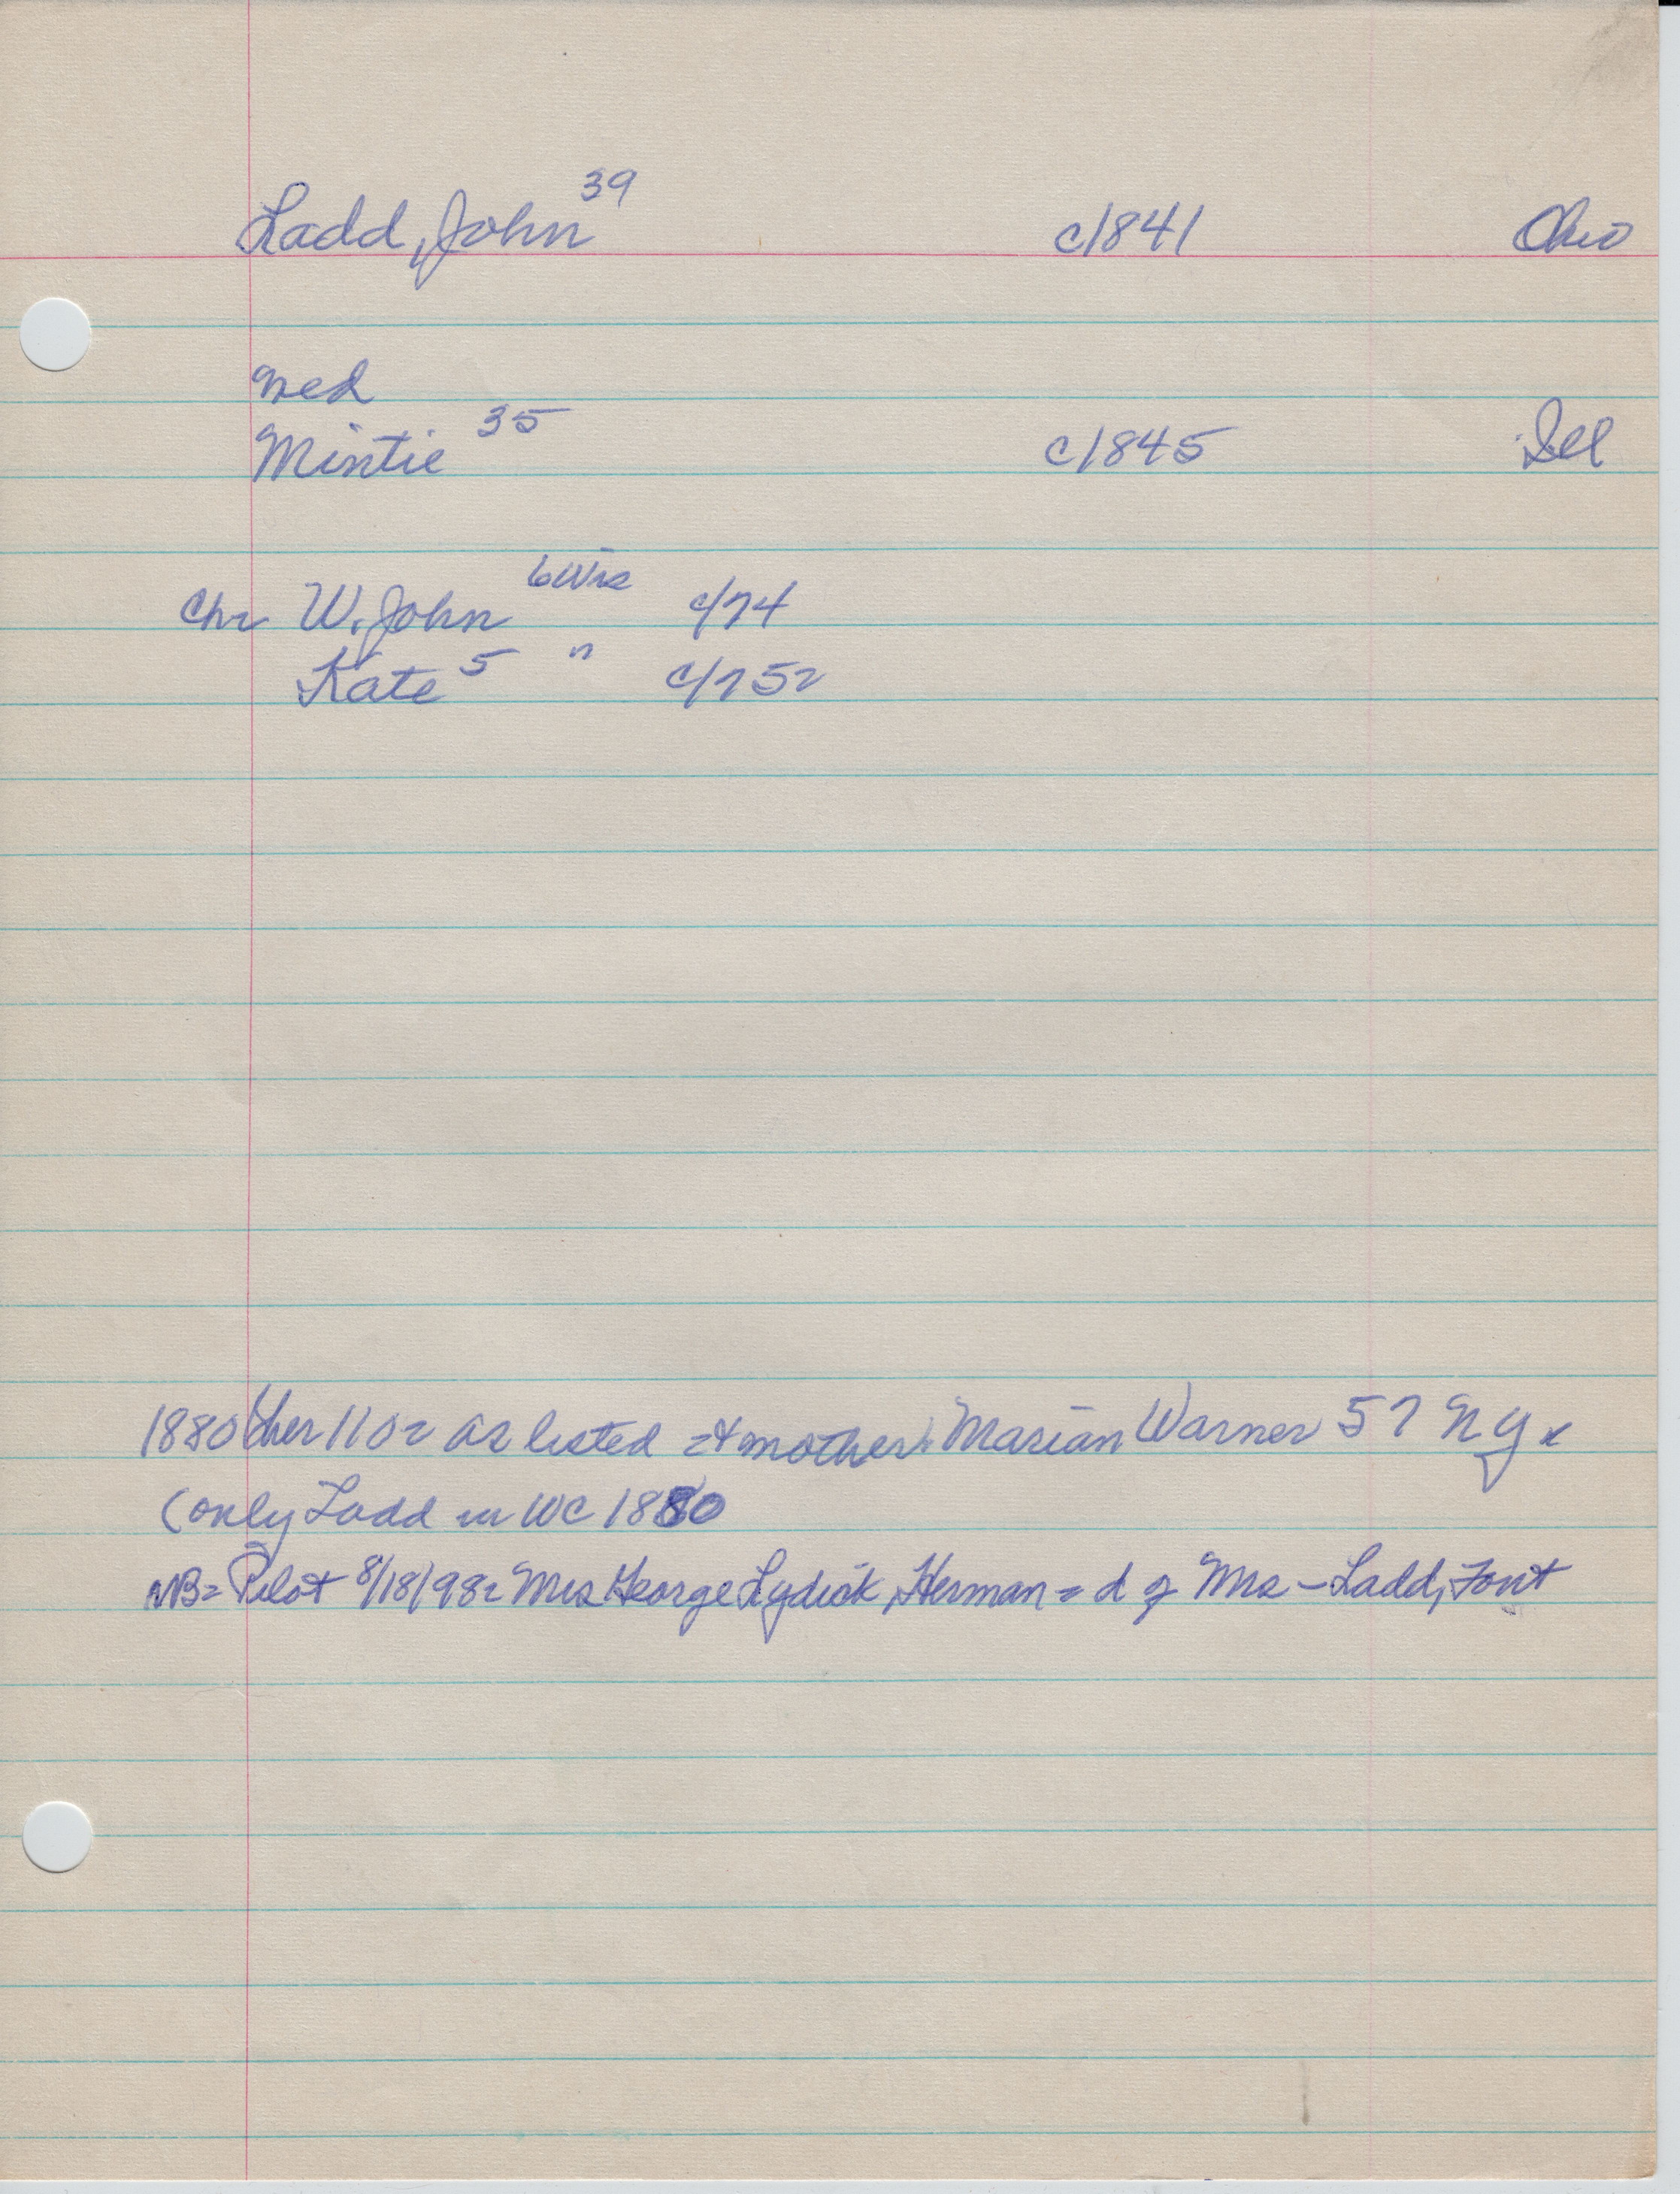 Ladd, John 39 c1841 Ohio
med
Mintie 35 c1845 Ill
Chr W. John 6 Wis c/74
Kate 5 " c/75
1880 Cher 110 = as listed + mother Marian Warner 57 NY
(only Ladd in WC 1880
NB = Pilot 8/18/98 = Mrs George Lydick, Herman = d of Mrs – Ladd, Font